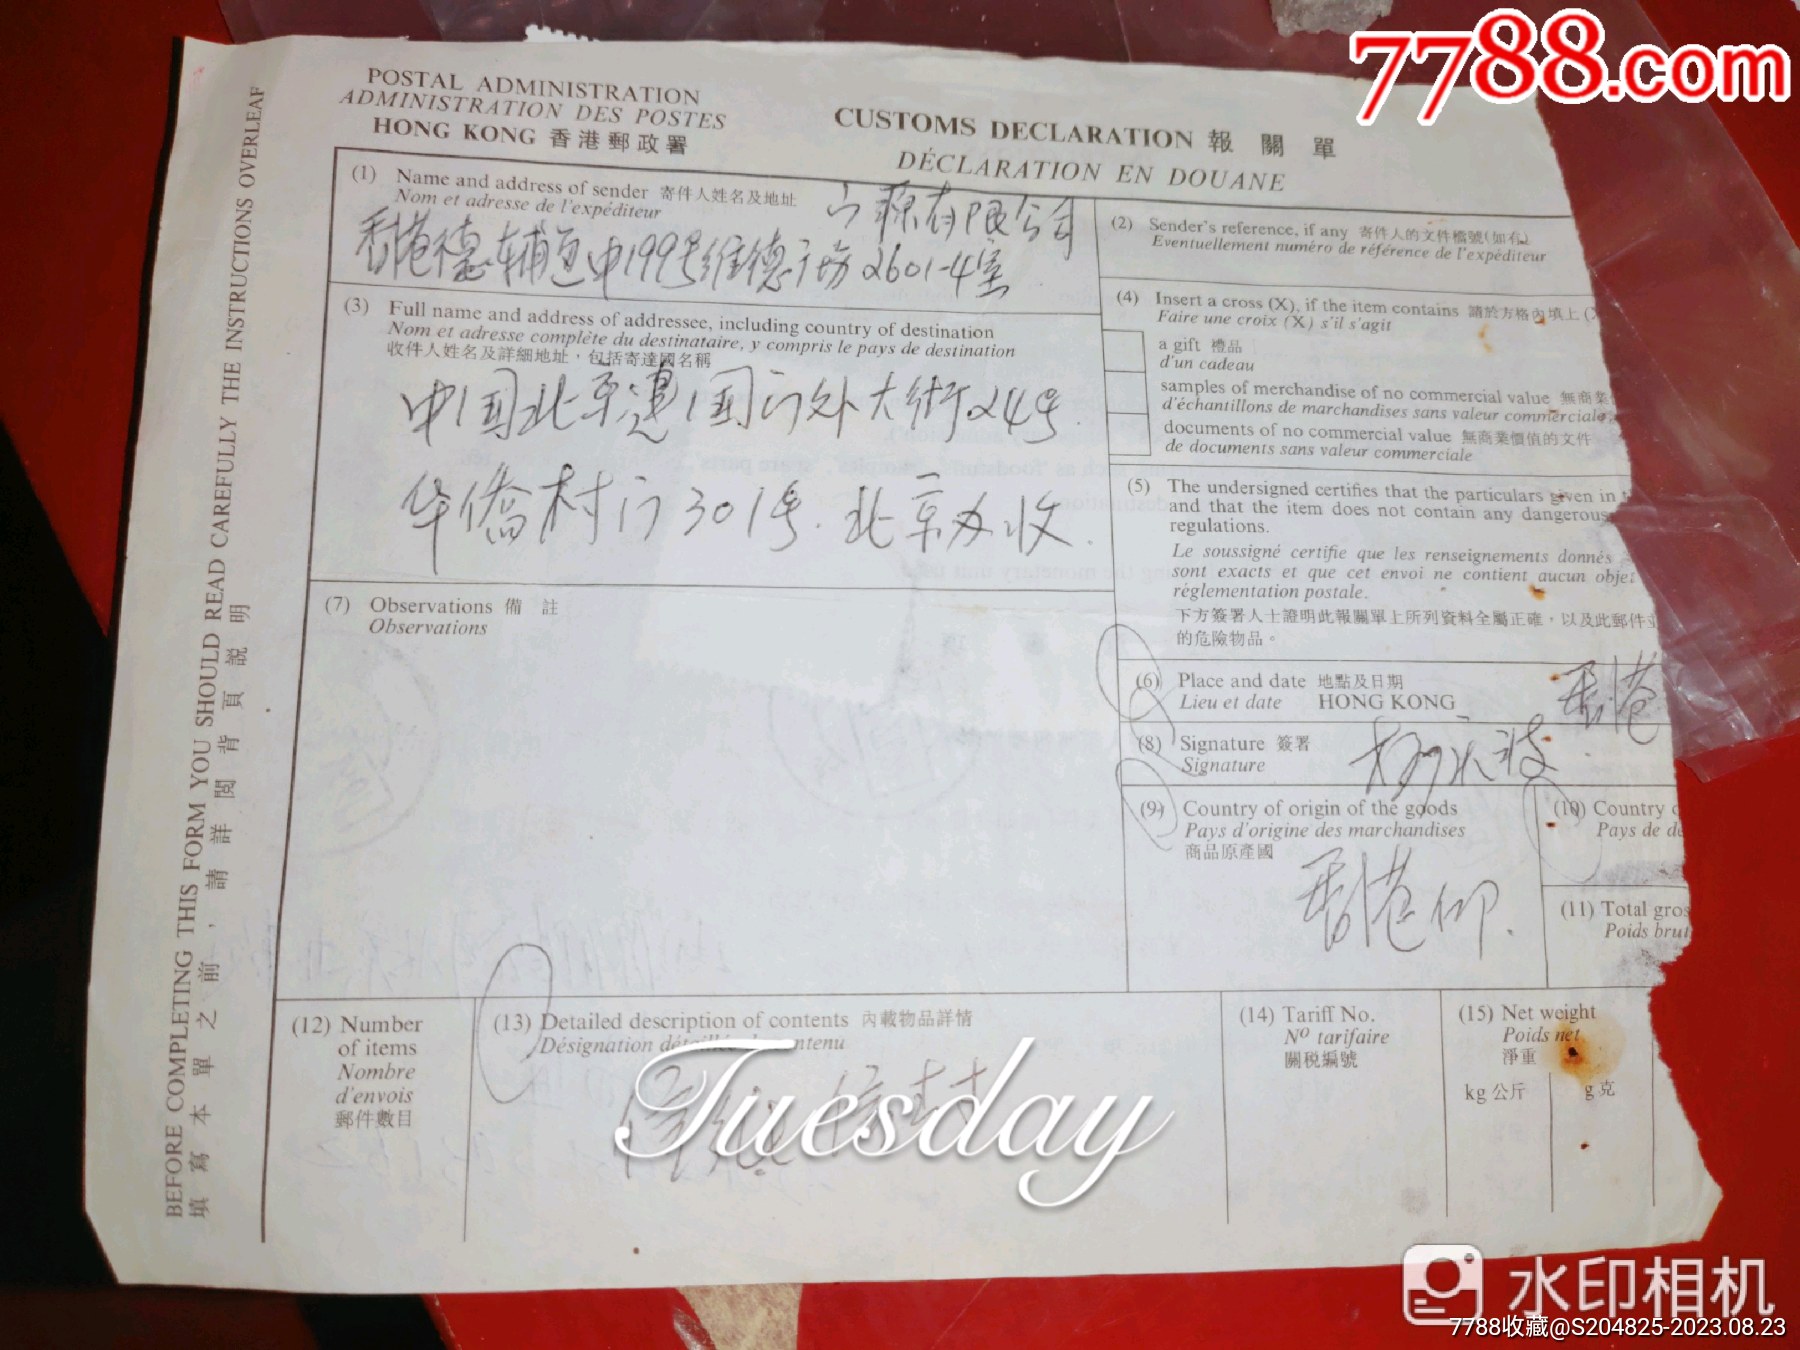 7788.com
POSTAL ADMINISTRATION
ADMINISTRATION DES POSTES
HONG KONG 香港郵政署
CUSTOMS DECLARATION 報 關 單
DÉCLARATION EN DOUANE
BEFORE COMPLETING THIS FORM YOU SHOULD READ CAREFULLY THE INSTRUCTIONS OVERLEAF
填 寫 本 單 之 前 ， 請 詳 閱 背 頁 説 明
(1) Name and address of sender 寄件人姓名及地址
Nom et adresse de l'expéditeur
有限公司
香港德輔道中199号維德广場2601-4室
(2) Sender's reference, if any 寄件人的文件檔號(如有)
Eventuellement numéro de référence de l'expéditeur
(3) Full name and address of addressee, including country of destination
Nom et adresse complète du destinataire, y compris le pays de destination
收件人姓名及詳細地址，包括寄達國名稱
中国北京建国门外大街24号
华僑村门301号.北京办收.
(4) Insert a cross (X), if the item contains 請於方格內填上 (X
Faire une croix (X) s'il s'agit
a gift 禮品
d'un cadeau
samples of merchandise of no commercial value 無商業
d'échantillons de marchandises sans valeur commerciale
documents of no commercial value 無商業價值的文件
de documents sans valeur commerciale
(5) The undersigned certifies that the particulars given in t
and that the item does not contain any dangerous
regulations.
Le soussigné certifie que les renseignements donnés
sont exacts et que cet envoi ne contient aucun objet
réglementation postale.
下方簽署人士證明此報關單上所列資料全屬正確，以及此郵件並
的危險物品。
(6) Place and date 地點及日期
Lieu et date HONG KONG
香港
(7) Observations 備 註
Observations
(8) Signature 簽署
Signature
(9) Country of origin of the goods
Pays d'origine des marchandises
商品原產國
香港
(10) Country
Pays de de
(11) Total gros
Poids brut
(12) Number
of items
Nombre
d'envois
郵件數目
(13) Detailed description of contents 內載物品詳情
Désignation détaillée du contenu
(14) Tariff No.
Nº tarifaire
關税編號
(15) Net weight
Poids net
淨重
kg 公斤
g 克
Tuesday
水印相机
7788收藏@S204825-2023.08.23